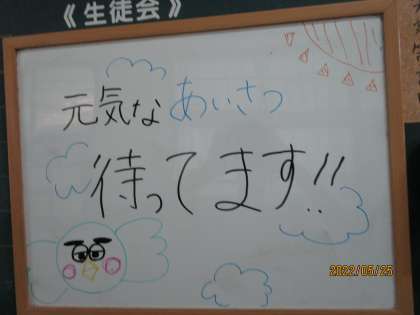 《生徒会》
元気なあいさつ
待ってます!!
2022/05/25